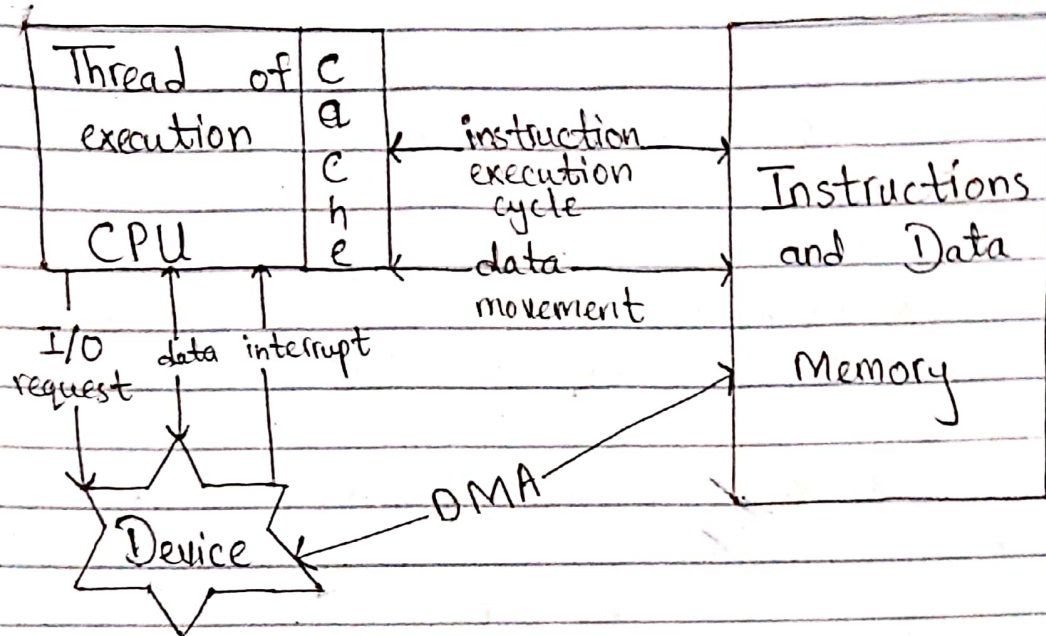 Thread of
execution
CPU
Cache
instruction
execution
cycle
data
movement
Instructions
and Data
Memory
I/O
request
data
interrupt
DMA
Device